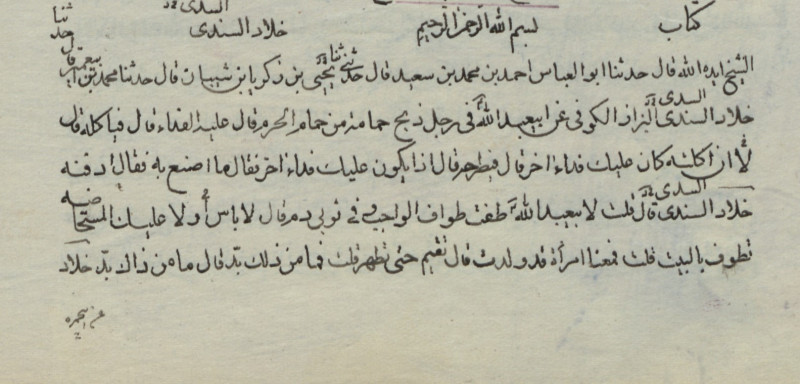 السدى
ثنا
كتاب بسم الله الرحمن الرحيم خلاد السندى حد
الشيخ ايده الله قال حدثنا ابو العباس احمد بن محمد بن سعيد قال حدثنا يحيى بن زكريا بن شيبان قال حدثنا محمد بن
السدى
خلاد السندى البزاز الكوفى عن ابيعبد الله فى رجل ذبح حمامة من حمام الحرم قال عليه الفداء قال فياكله قال
لا ان اكلته كان عليك فداء اخر قال فيطرحه قال اذا يكون عليك فداء اخر فقال ما اصنع به فقال ادفنه
السدى
خلاد السندى قال قلت لابيعبد الله طفت طواف الواجب فى ثوبى دم قال لا باس أو لا عليك المستحاضه
تطوف بالبيت قلت فمعنا امرأة قد ولدت قال تقيم حتى تطهر قلت فما من ذلك بد قال ما من ذاك بد خلاد